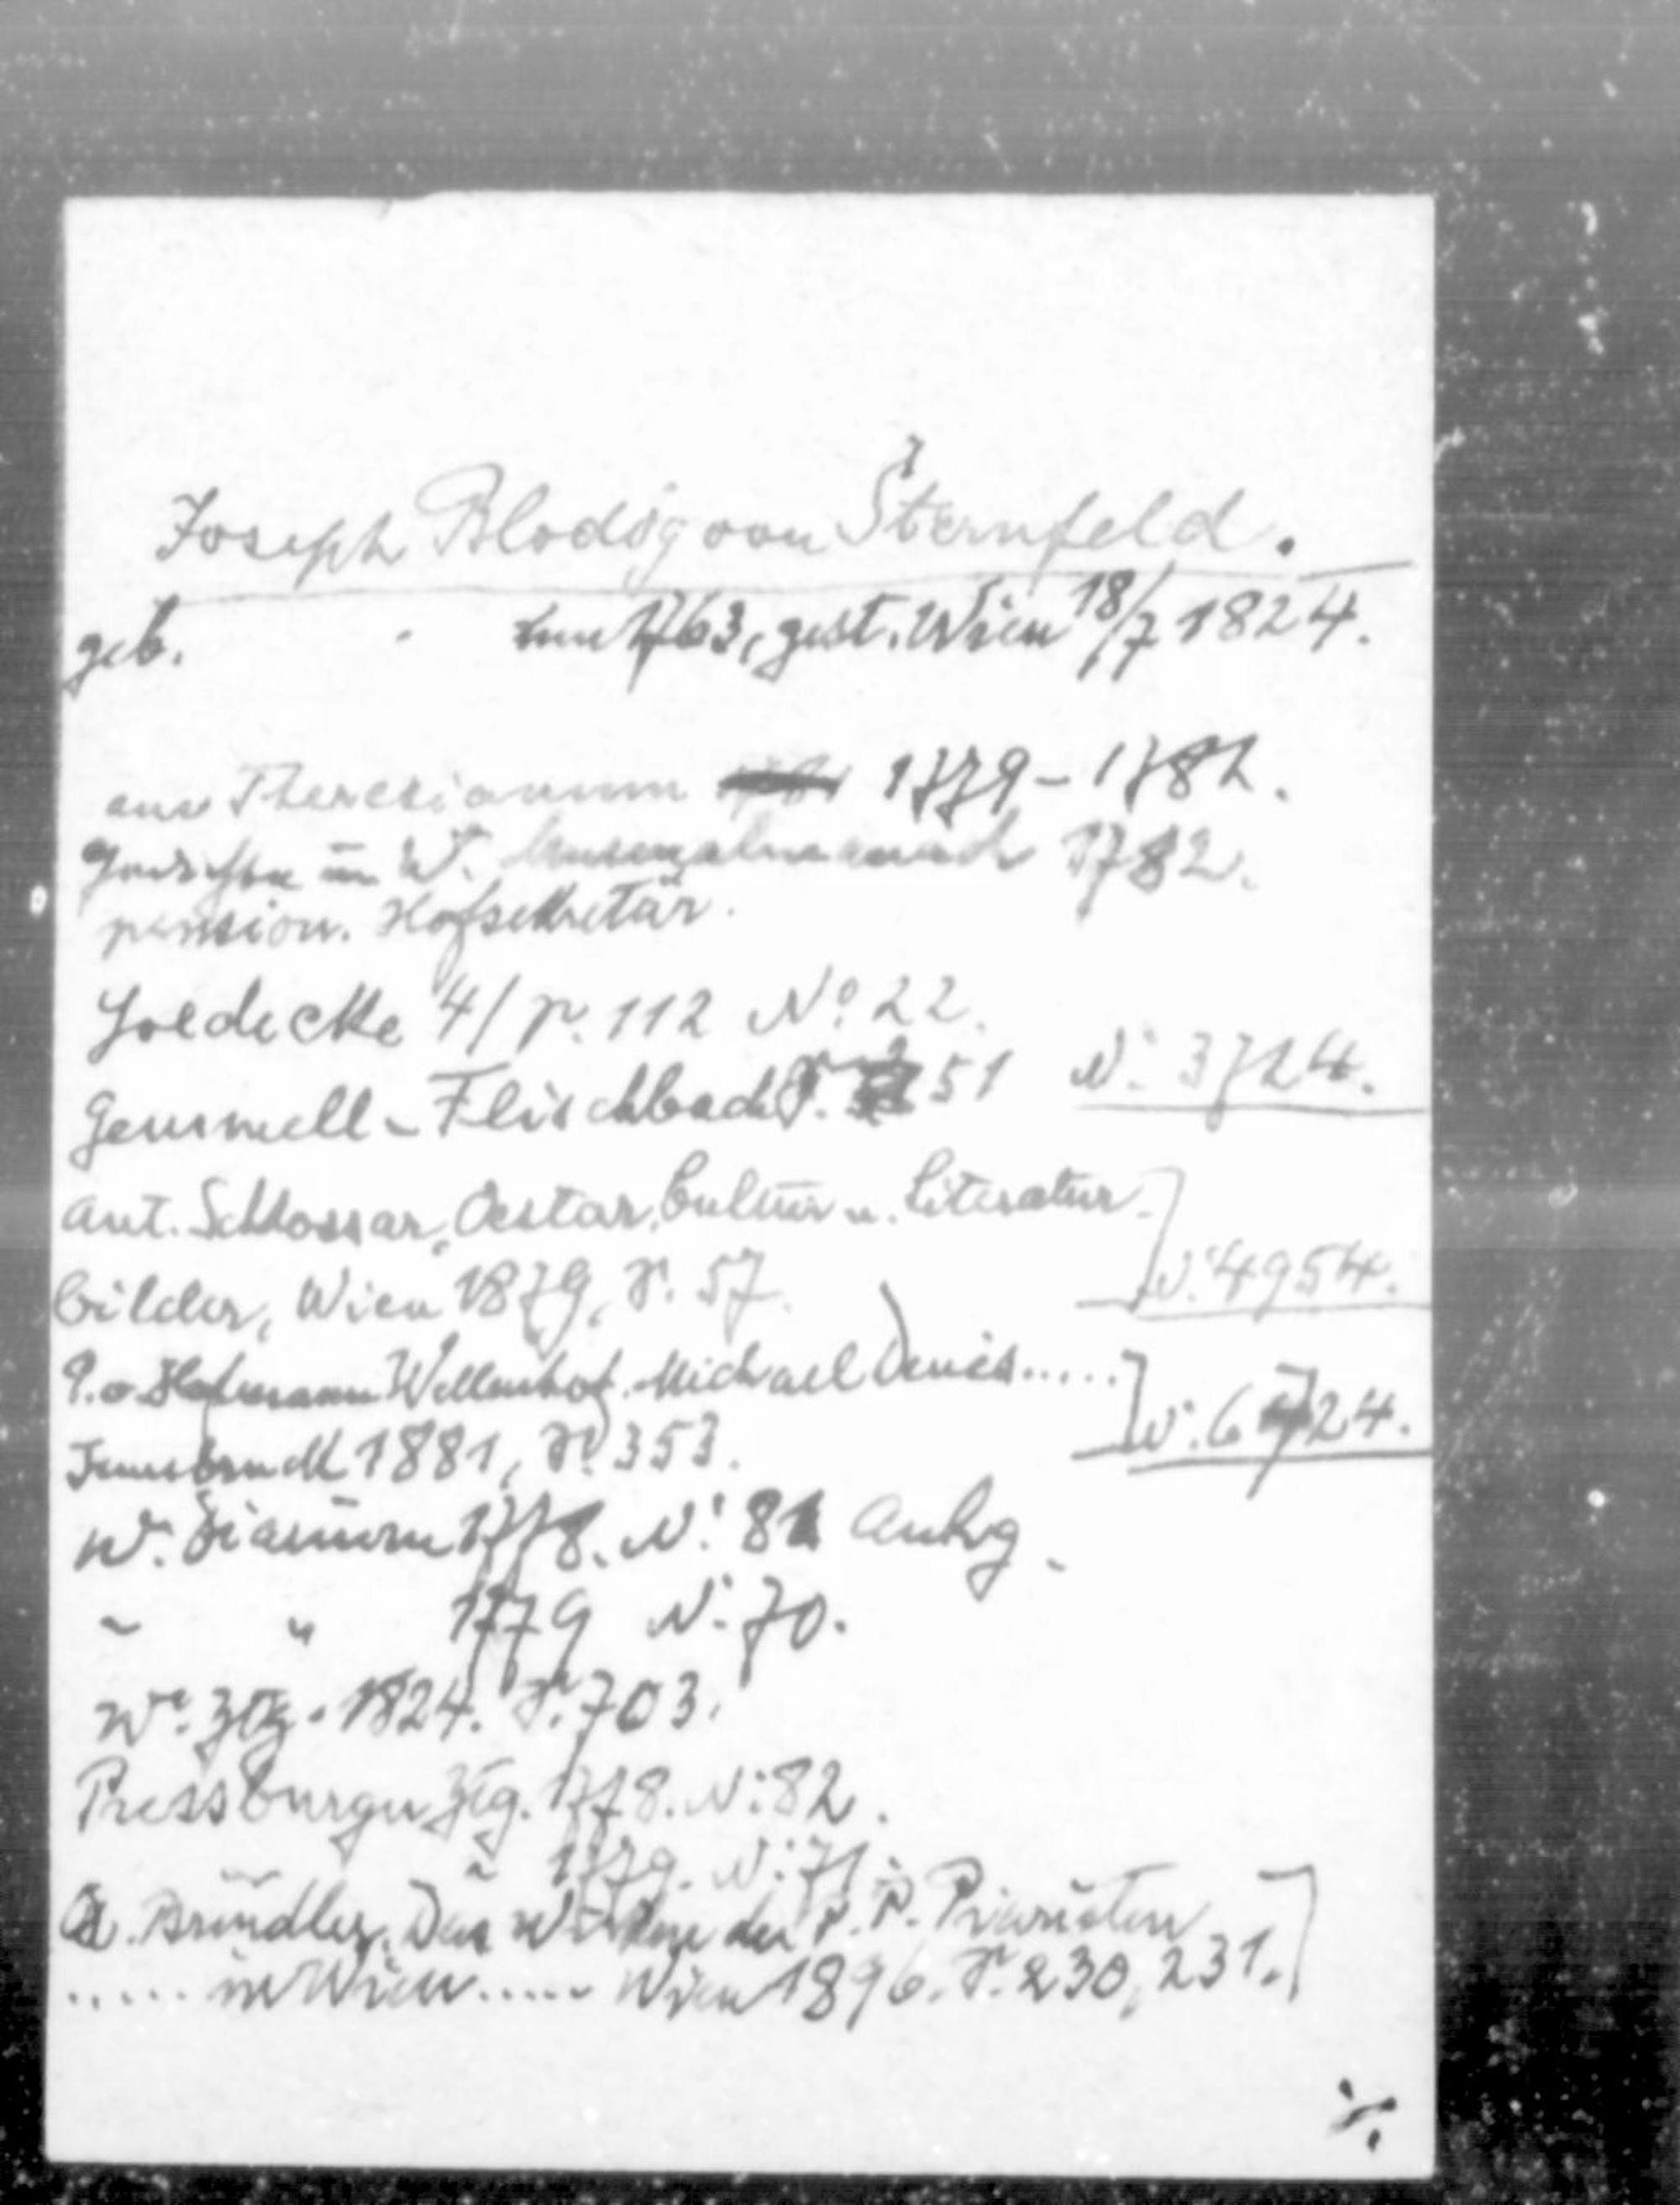 Joseph Blodig von Sternfeld.
geb. um 1763, gest. Wien 18/7 1824.
am Theresianum 1779-1782.
Gedichte im W. Musenalmanach 1782.
pension. Hofsekretär.
Goedecke 4/ p. 112 No. 22.
Gemmell-Flischbach S. 51 N: 3724.
Ant. Schlossar, Oestar. Cultur u. Literatur-
bilder, Wien 1879, S. 57. N: 4954.
P. v. Hofmann Wellenhof. Michael Denis.....
Innsbruck 1881, S. 353. N: 6724.
W. Diarium 1778. N: 81 Anhg.
" " 1779 N: 70.
Wr. Ztg. 1824. S. 703.
Pressburger Ztg. 1778. N: 82.
1779. N: 71.
A. Brendler, Das Wirken der P. P. Piaristen
..... in Wien ..... Wien 1896. S. 230, 231.
./.